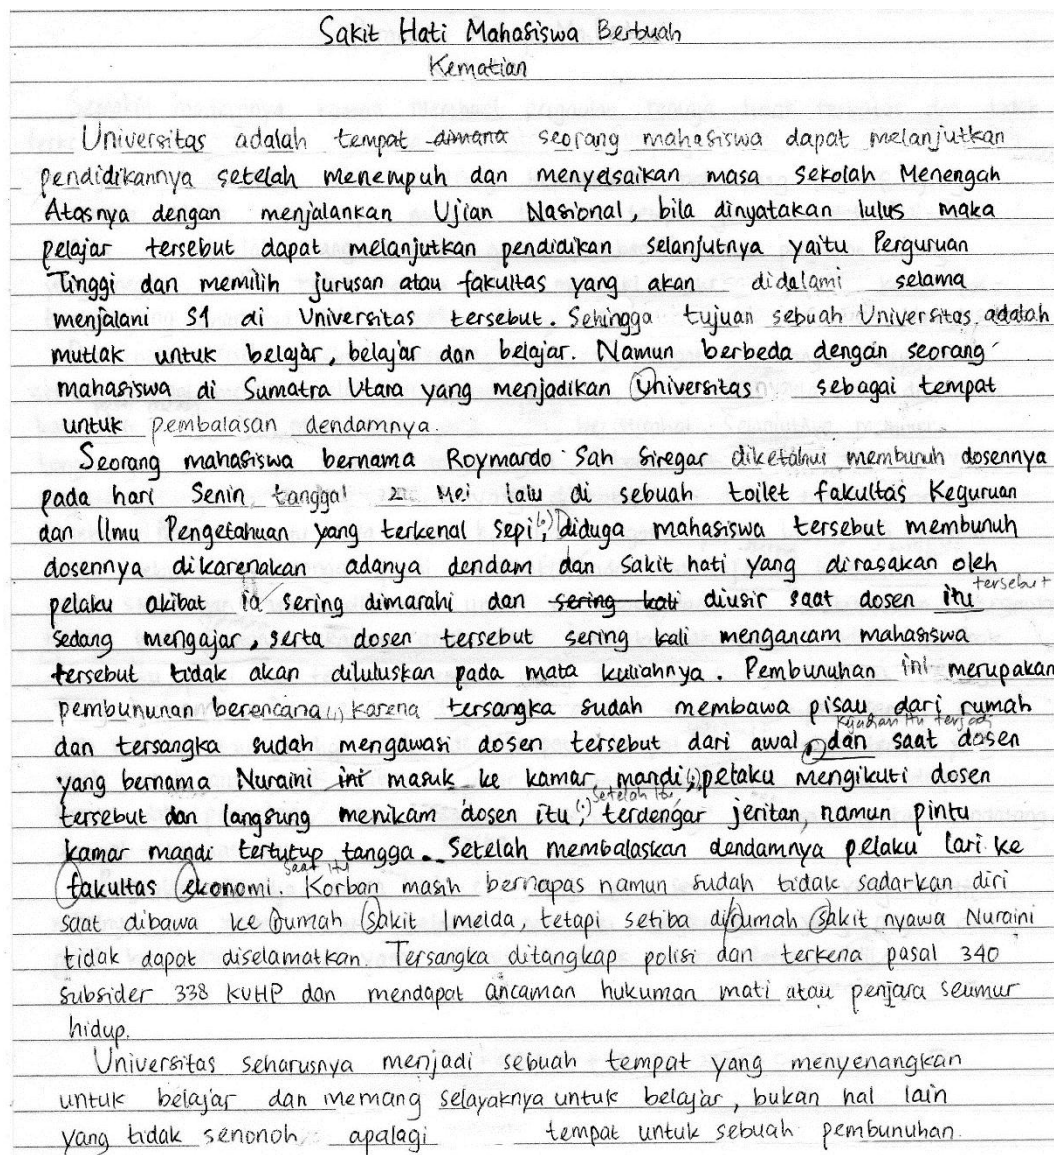 Sakit Hati Mahasiswa Berbuah
Kematian
Universitas adalah tempat dimana seorang mahasiswa dapat melanjutkan
pendidikannya setelah menempuh dan menyelsaikan masa Sekolah Menengah
Atasnya dengan menjalankan Ujian Nasional, bila dinyatakan lulus maka
pelajar tersebut dapat melanjutkan pendidikan selanjutnya yaitu Perguruan
Tinggi dan memilih jurusan atau fakultas yang akan didalami selama
menjalani S1 di Universitas tersebut. Sehingga tujuan sebuah Universitas adalah
mutlak untuk belajar, belajar dan belajar. Namun berbeda dengan seorang
mahasiswa di Sumatra Utara yang menjadikan Universitas sebagai tempat
untuk pembalasan dendamnya.
Seorang mahasiswa bernama Roymardo Sah Siregar diketahui membunuh dosennya
pada hari Senin, tanggal 2 Mei lalu di sebuah toilet fakultas Keguruan
dan Ilmu Pengetahuan yang terkenal sepi, (.) Diduga mahasiswa tersebut membunuh
dosennya dikarenakan adanya dendam dan sakit hati yang dirasakan oleh
pelaku akibat ia sering dimarahi dan sering kali diusir saat dosen itu tersebut
sedang mengajar, serta dosen tersebut sering kali mengancam mahasiswa
tersebut tidak akan diluluskan pada mata kuliahnya. Pembunuhan ini merupakan
pembununan berencana (,) karena tersangka sudah membawa pisau dari rumah
dan tersangka sudah mengawasi dosen tersebut dari awal, Kejadian itu terjadi dan saat dosen
yang bernama Nuraini ini masuk ke kamar mandi, pelaku mengikuti dosen
tersebut dan langsung menikam dosen itu, (.) Setelah itu, terdengar jeritan, namun pintu
kamar mandi tertutup tangga. Setelah membalaskan dendamnya pelaku lari ke
fakultas ekonomi. Saat itu Korban masih bernapas namun sudah tidak sadarkan diri
saat dibawa ke rumah sakit Imelda, tetapi setiba dirumah sakit nyawa Nuraini
tidak dapat diselamatkan. Tersangka ditangkap polisi dan terkena pasal 340
subsider 338 KUHP dan mendapat ancaman hukuman mati atau penjara seumur
hidup.
Universitas seharusnya menjadi sebuah tempat yang menyenangkan
untuk belajar dan memang selayaknya untuk belajar, bukan hal lain
yang tidak senonoh apalagi tempat untuk sebuah pembunuhan.